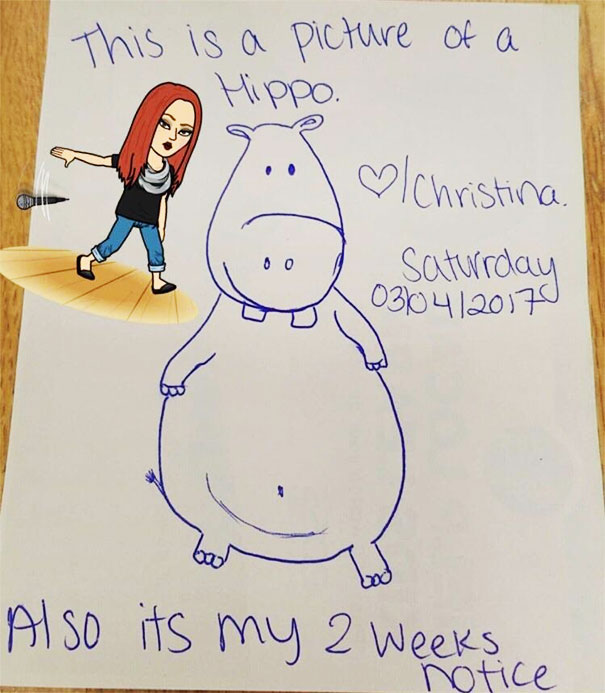 This is a picture of a
Hippo.
♡/Christina.
Saturday
03/04/2017
Also its my 2 weeks
notice